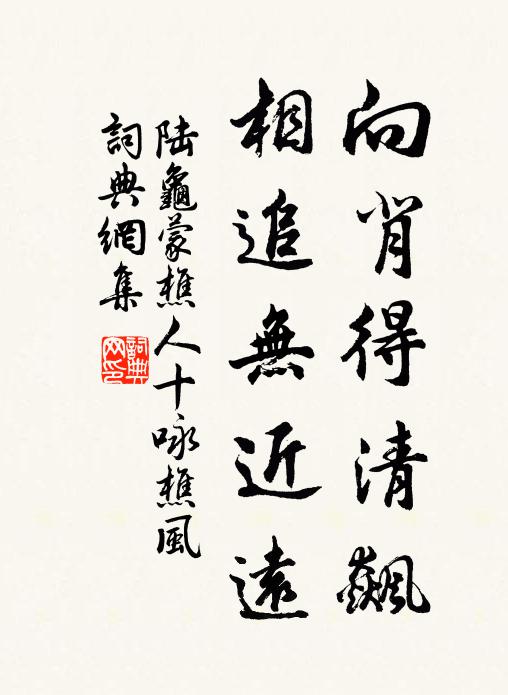 向背得清飆
相追無近遠
陸龜蒙樵人十咏樵風
詞典網集
詞典
网印